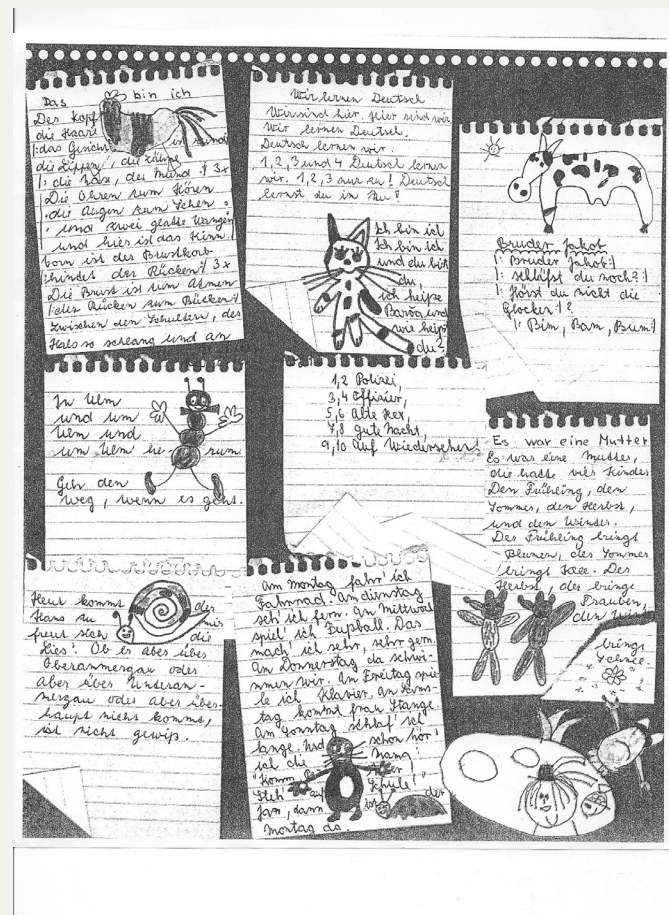 Das bin ich
Der Kopf
die Haare
|: das Gesicht ist rund
die Lippen, die Zähne
|: die Nas, der Mund :| 3x
Die Ohren zum Hören
die Augen zum Sehen
und zwei glatte Wangen
und hier ist das Kinn
vorn ist der Brustkorb
|: hinter der Rücken :| 3x
Die Brust ist zum Atmen
|: der Rücken zum Bücken :|
Zwischen den Schultern, der
Hals so schlang und an
Wir lernen Deutsch
Wir sind hier, hier sind wir
Wir lernen Deutsch.
Deutsch lernen wir.
1, 2, 3 und 4 Deutsch lernen
wir. 1, 2, 3 nur zu! Deutsch
lernst du im Nu!
Ich bin ich
Ich bin ich
und du bist
du,
ich heiße
und
wie heißt
du?
Bruder Jakob
|: Bruder Jakob :|
|: schläfst du noch? :|
|: Hörst du nicht die
Glocken :| ?
|: Bim, Bam, Bum :|
In Ulm
und um
Ulm und
um Ulm he-rum.
Geh den
Weg, wenn es geht.
1, 2 Polizei,
3, 4 Offizier,
5, 6 Alte Hex,
7, 8 gute Nacht,
9, 10 Auf Wiedersehen!
Es war eine Mutter
Es war eine Mutter,
die hatte vier Kinder
Den Frühling, den
Sommer, den Herbst,
und den Winter.
Der Frühling bringt
Blumen, der Sommer
bringt Klee. Der
Herbst, der bringt
Trauben,
den Win
bringt
Schnee.
Heut kommt der
Hans zu mir
freut sich die
Lies'. Ob er aber über
Oberammergau oder
aber über Unteram-
mergau oder aber über-
haupt nicht kommt,
ist nicht gewiß.
Am Montag fahr' ich
Fahrrad. Am Dienstag
seh' ich fern. Am Mittwoch
spiel' ich Fußball. Das
mach' ich sehr, sehr gern
Am Donnerstag da schwi-
mmen wir. Am Freitag spie-
le ich Klavier. Am Sams-
tag kommt Frau Stange.
Am Sonntag schlaf' ich
lange. Und schon hör'
ich die
"Komm
Steh auf Schule!"
Jan, dann ist der
Montag da.